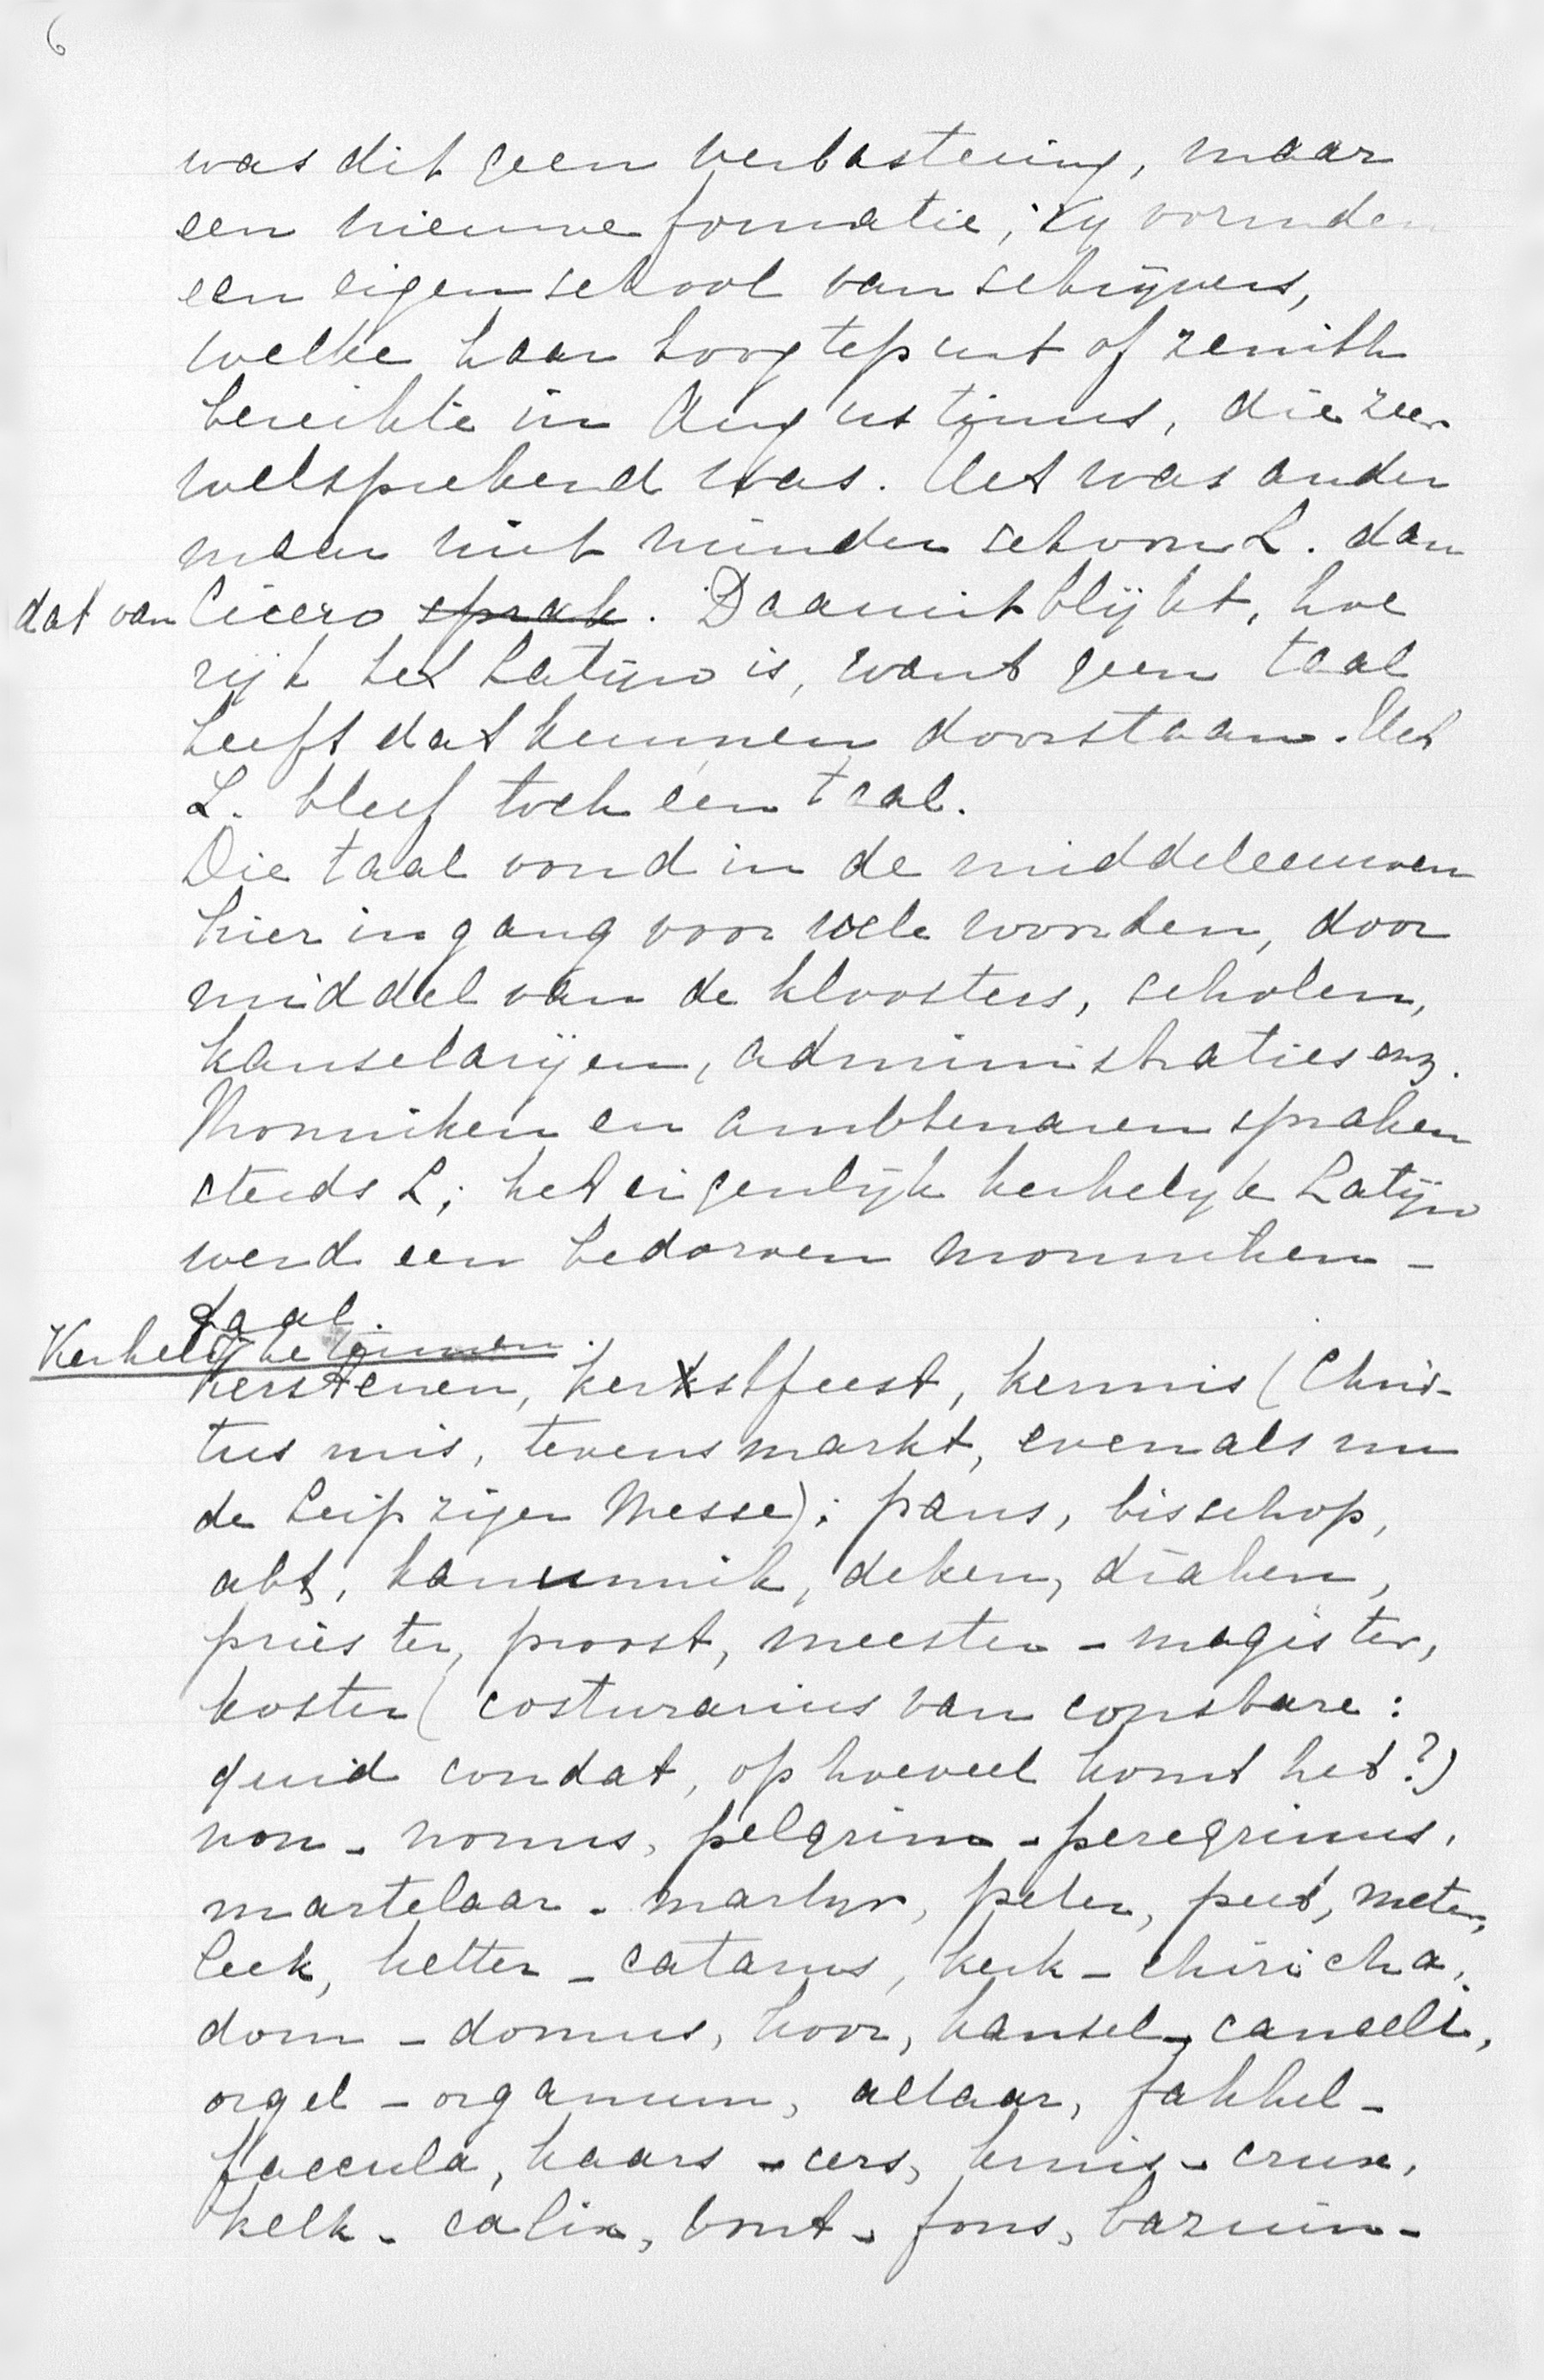 6
was dit geen verbastering, maar
een nieuwe formatie; zij vormden
een eigen school van schrijvers,
welke haar hoogtepunt of zenith
bereikte in Augustinus, die zeer
welsprekend was. Het was ander
maar niet minder schoon L. dan
dat van Cicero sprak. Daaruit blijkt, hoe
rijk het Latijn is, want geen taal
heeft dat kunnen doorstaan. Het
L. bleef toch één taal.
Die taal vond in de middeleeuwen
hier ingang voor vele woorden, door
middel van de kloosters, scholen,
kanselarijen, administraties enz.
Monniken en ambtenaren spraken
steeds L; het eigenlijk kerkelijk Latijn
werd een bedorven monniken-
taal.
Kerkelijke termen.
Kerstenen, kerstfeest, kermis (Chris-
tus mis, tevens markt, evenals nu
de Leipziger Messe); paus, bisschop,
abt, kanunnik, deken, diaken,
priester, proost, meester - magister,
koster (costurarius van constare:
quid condat, op hoeveel komt het?)
non - nonnus, pelgrim - peregrinus,
martelaar - martyr, peter, peet, meter,
leek, ketter - catarus, kerk - chiricha,
dom - domus, koor, kansel - cancelli,
orgel - organum, altaar, fakkel -
faccula, kaars - cers, kruis - crux,
kelk - calix, vont - fons, bazuin -